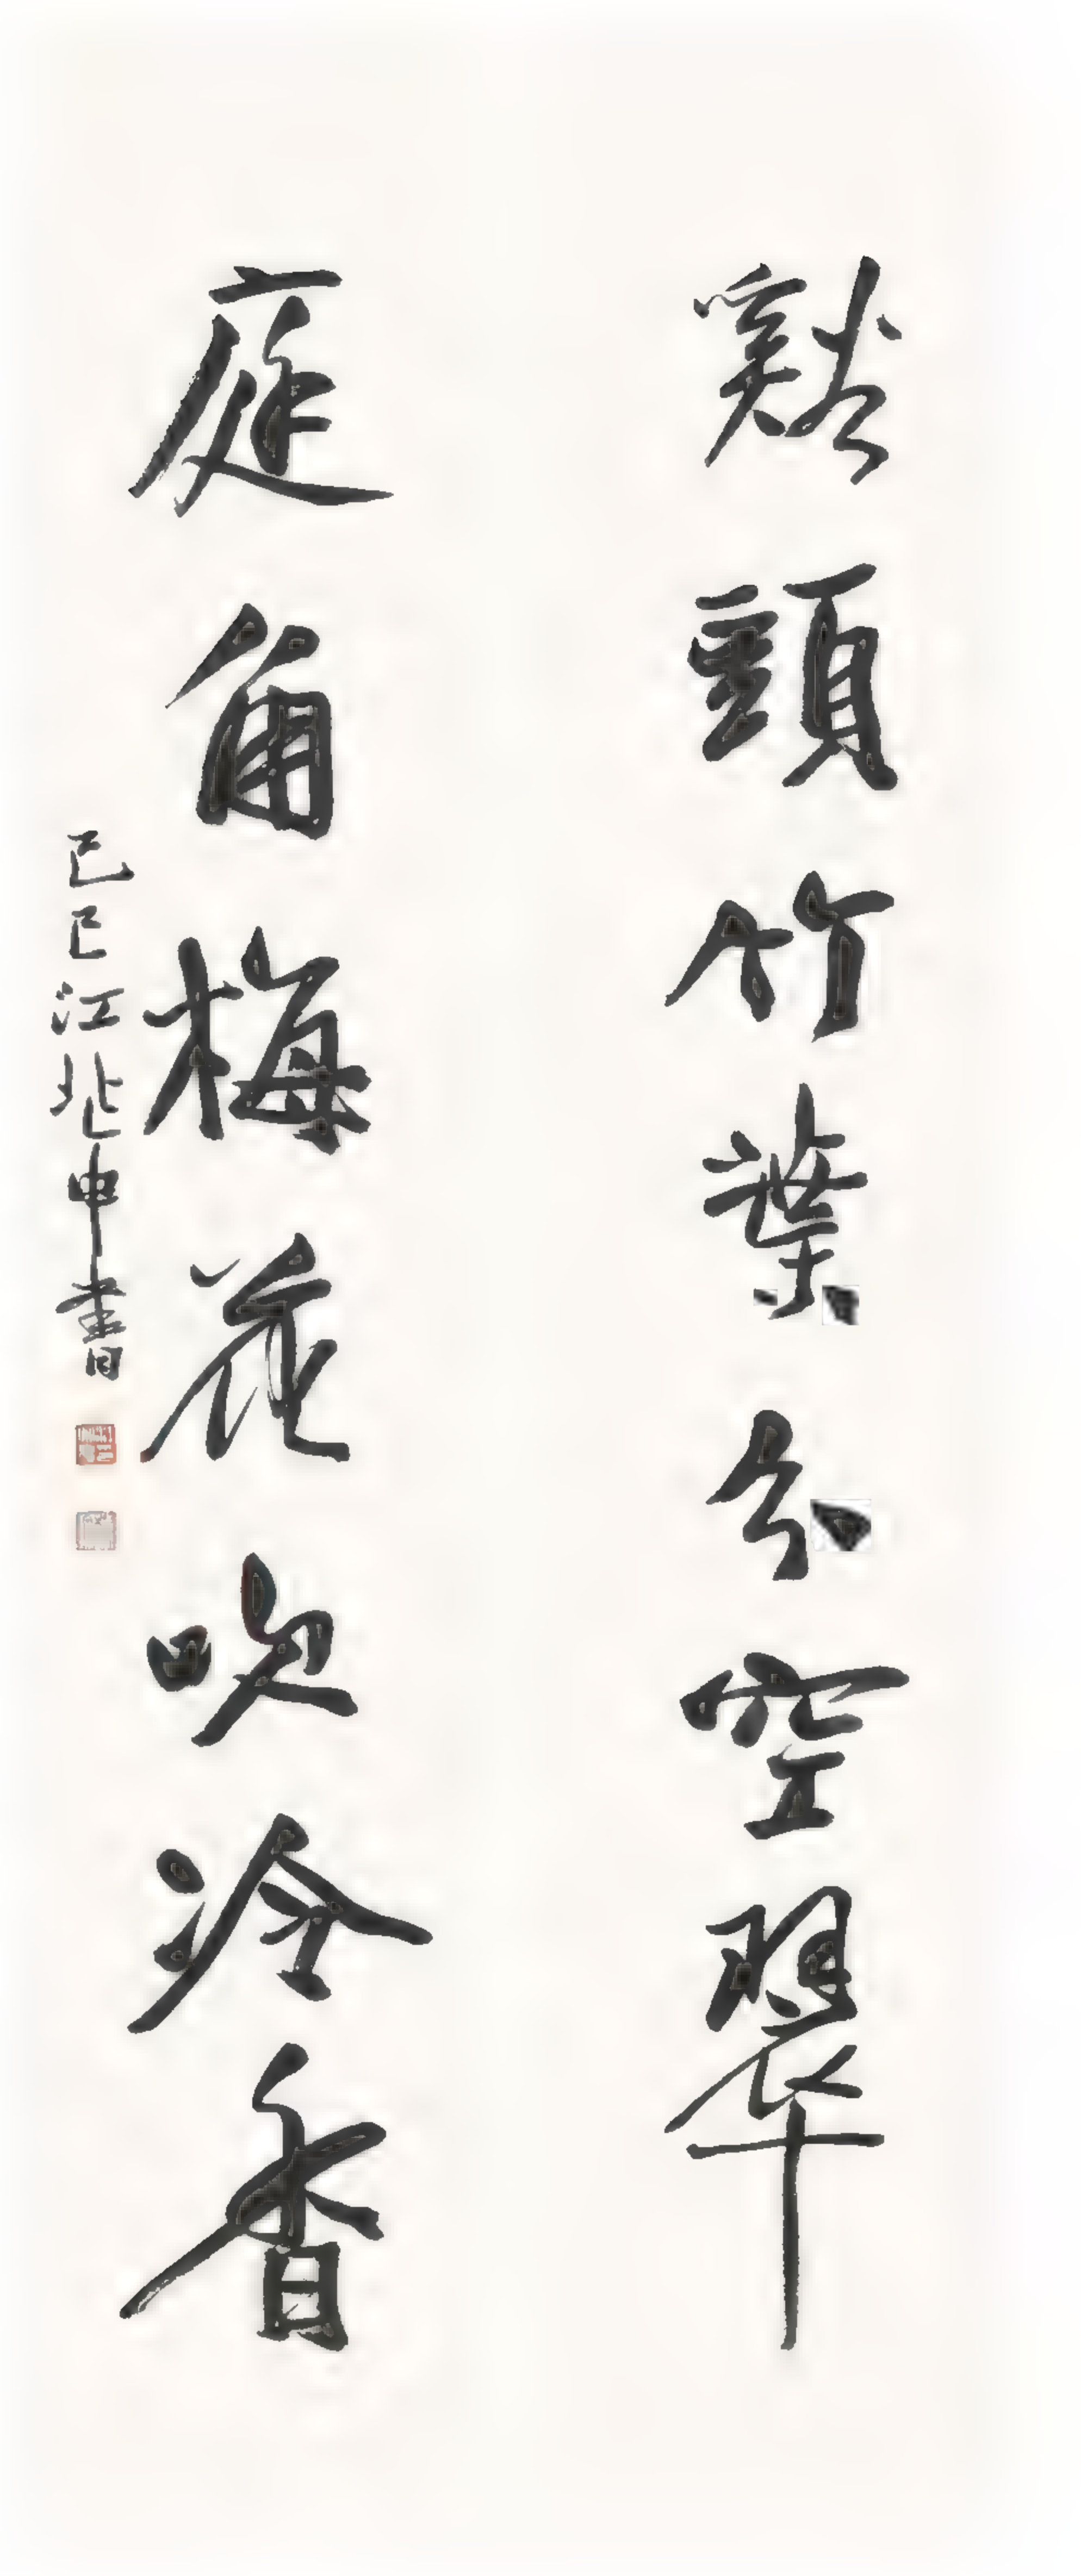 谿頭竹葉分空翠
庭角梅花吹冷香
己巳江兆申書